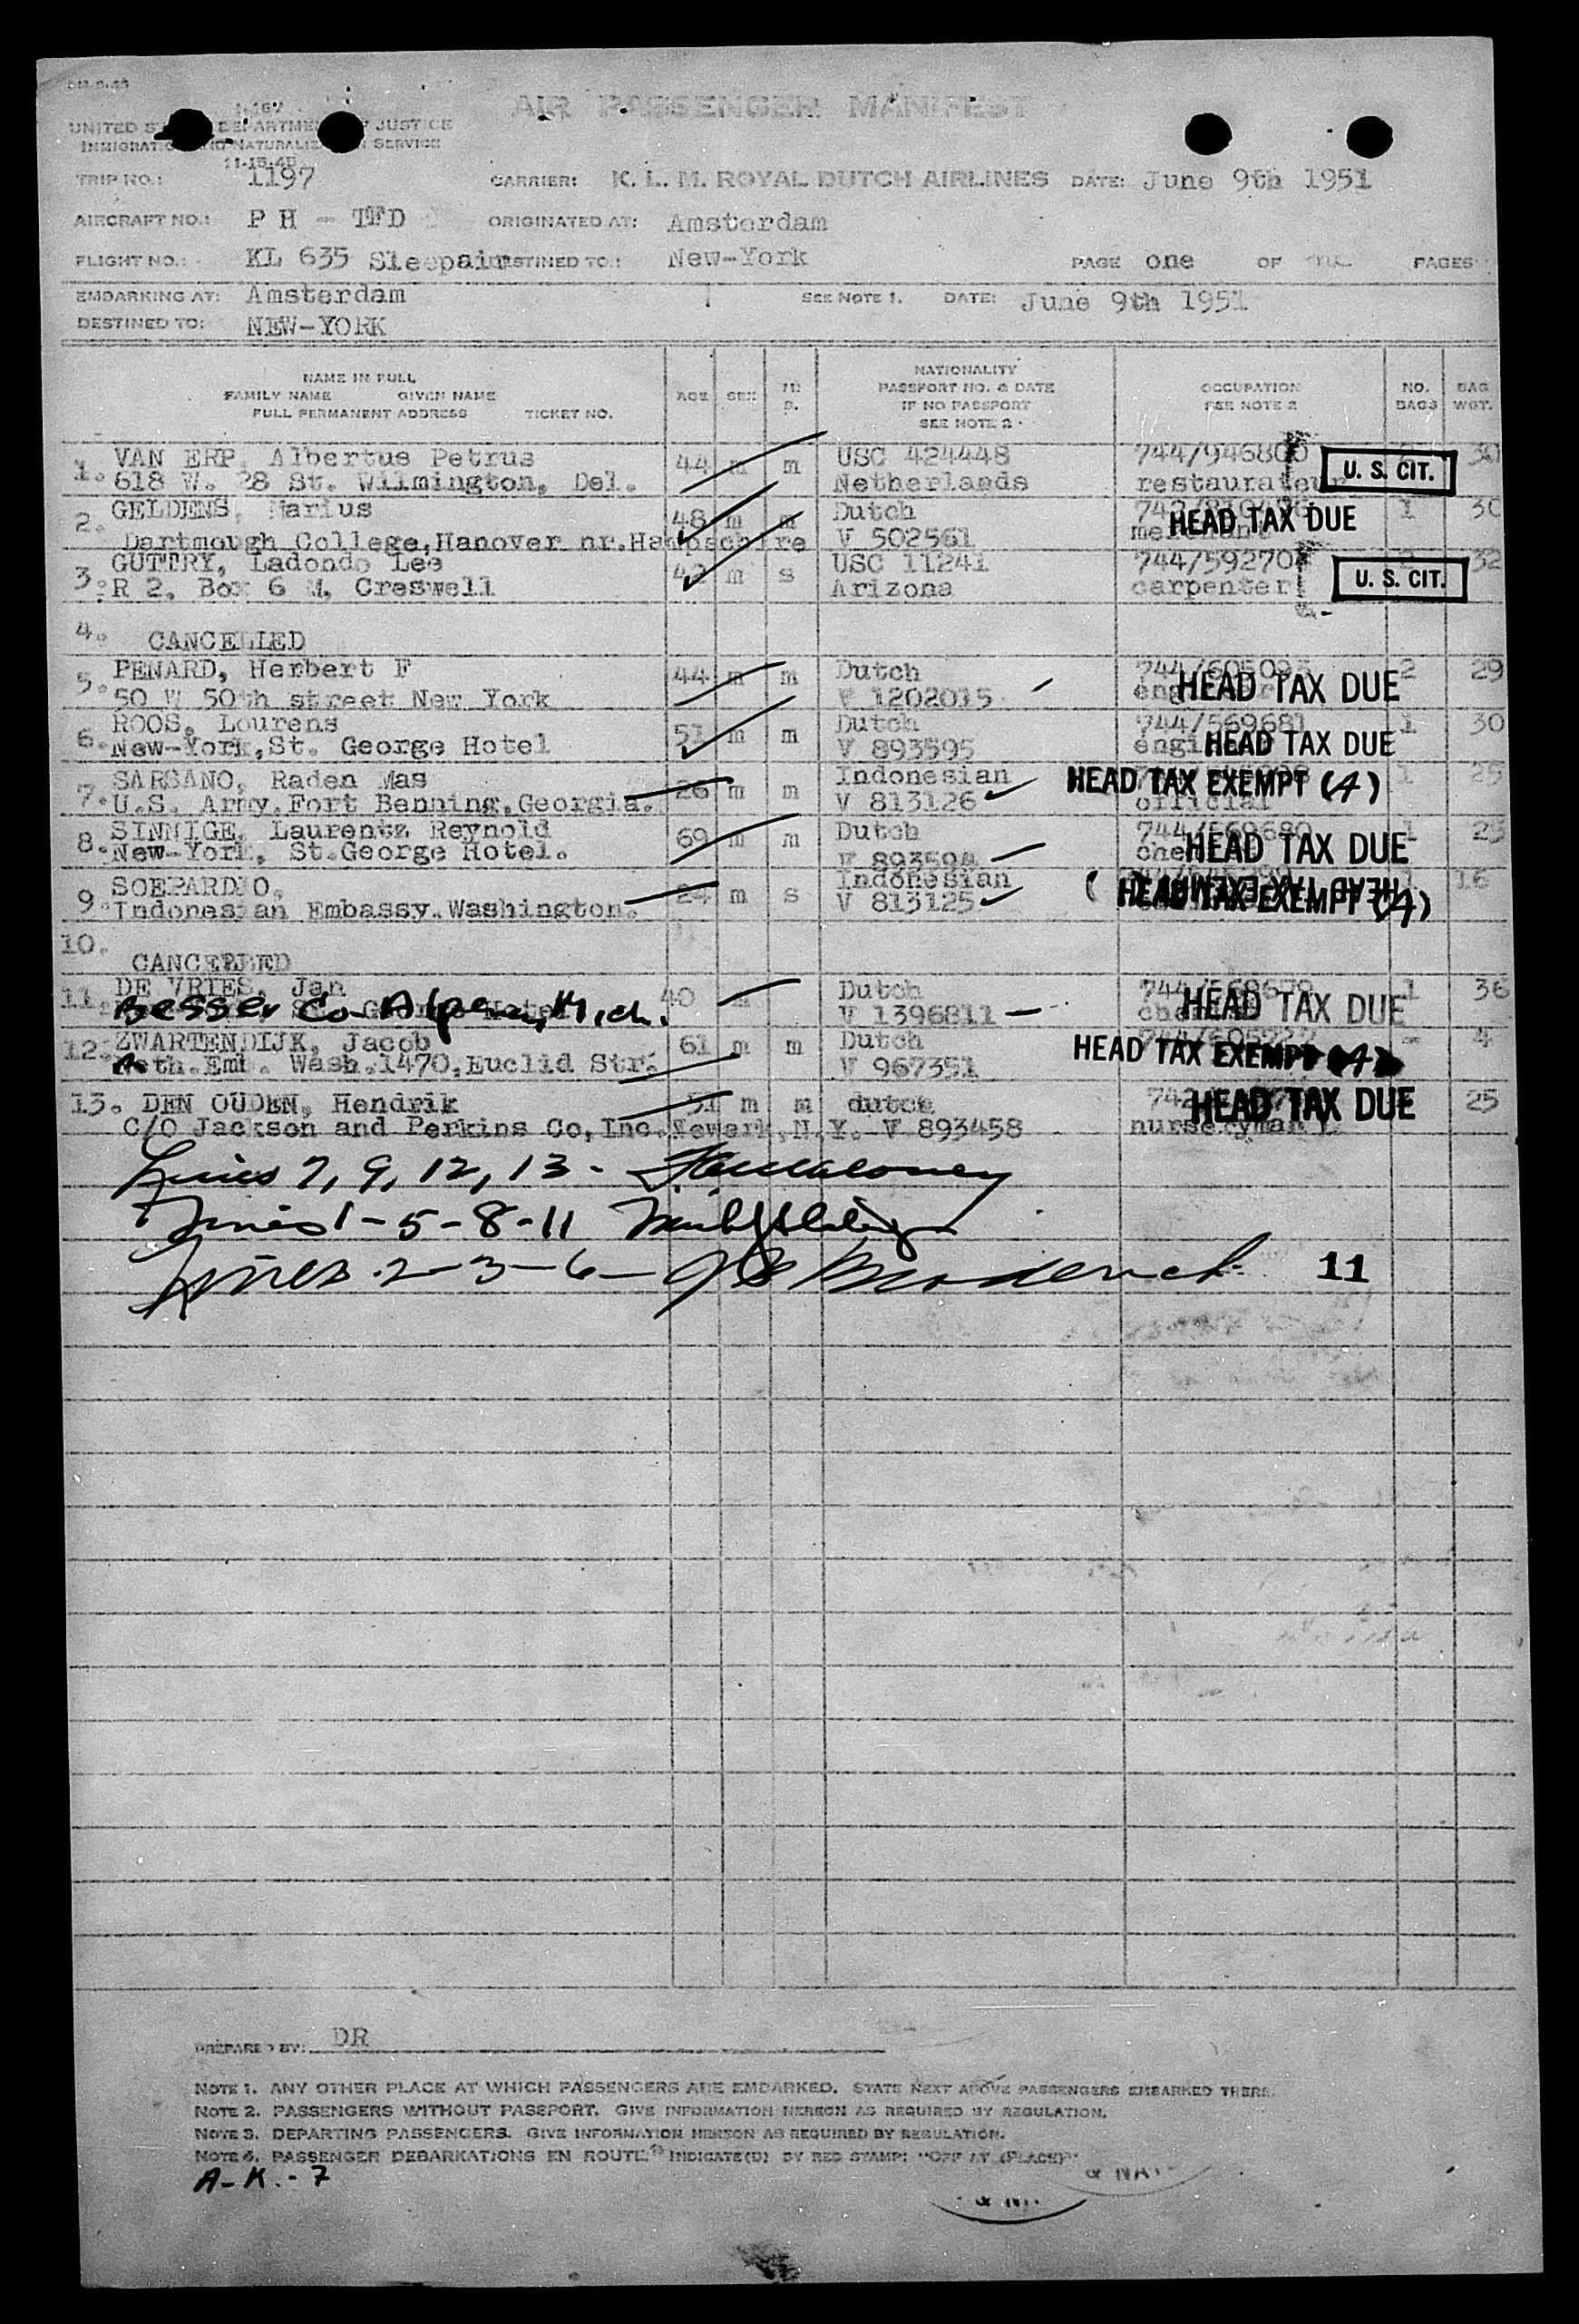 AIR PASSENGER MANIFEST
I-467
UNITED STATES DEPARTMENT OF JUSTICE
IMMIGRATION AND NATURALIZATION SERVICE
11-15-45
TRIP NO.: 1197 CARRIER: K. L. M. ROYAL DUTCH AIRLINES DATE: June 9th 1951
AIRCRAFT NO.: P H - TFD ORIGINATED AT: Amsterdam
FLIGHT NO.: KL 635 Sleepair DESTINED TO.: New-York PAGE one OF PAGES
EMBARKING AT: Amsterdam SEE NOTE 1. DATE: June 9th 1951
DESTINED TO: NEW-YORK
NAME IN FULL
FAMILY NAME GIVEN NAME
FULL PERMANENT ADDRESS TICKET NO.
AGE SEX M S.
NATIONALITY
PASSPORT NO. & DATE
IF NO PASSPORT
SEE NOTE 2
OCCUPATION
SEE NOTE 2
NO. BAGS
BAG WGT.
1. VAN ERP, Albertus Petrus 44 m m USC 424448 744/946800 30
618 W. 28 St. Wilmington, Del. Netherlands restaurateur U. S. CIT.
2. GELDENS, Marius 48 m m Dutch 1 30
Dartmough College, Hanover nr. Hampschire V 502561 HEAD TAX DUE
3. GUTTRY, Ladondo Lee 42 m s USC 11241 744/59270 32
R 2. Box 6 M, Creswell Arizona carpenter U. S. CIT.
4. CANCELLED
5. PENARD, Herbert F 44 m m Dutch 744/605093 2 29
50 W 50th street New York V 1202015 HEAD TAX DUE
6. ROOS, Lourens 51 m m Dutch 744/569681 1 30
New-York, St. George Hotel V 893595 HEAD TAX DUE
7. SARSANO, Raden Mas 26 m m Indonesian 1 25
U.S. Army. Fort Benning, Georgia. V 813126 official HEAD TAX EXEMPT (4)
8. SINNIGE, Laurentz Reynold 69 m m Dutch 744/569680 1 23
New-York, St. George Hotel. V 893594 HEAD TAX DUE
9. SOEPARDJO, 24 m s Indonesian 1 16
Indonesian Embassy. Washington. V 813125 HEAD TAX EXEMPT (4)
10. CANCELLED
11. DE VRIES, Jan 40 m Dutch 744/568679 1 36
Besser Co Alpena, Mich. V 1396811 HEAD TAX DUE
12. ZWARTENDIJK, Jacob 61 m m Dutch 744/605227 - 4
Neth. Emb. Wash. 1470, Euclid Str. V 967351 HEAD TAX EXEMPT (4)
13. DEN OUDEN, Hendrik 51 m m dutch 25
C/O Jackson and Perkins Co, Inc. Newark, N.Y. V 893458 nurseryman HEAD TAX DUE
Lines 7, 9, 12, 13 -
Lines 1 - 5 - 8 - 11
Lines 2 - 3 - 6 - 11
PREPARED BY: DR
NOTE 1. ANY OTHER PLACE AT WHICH PASSENGERS ARE EMBARKED. STATE NEXT ABOVE PASSENGERS EMBARKED THERE.
NOTE 2. PASSENGERS WITHOUT PASSPORT. GIVE INFORMATION HEREON AS REQUIRED BY REGULATION.
NOTE 3. DEPARTING PASSENGERS. GIVE INFORMATION HEREON AS REQUIRED BY REGULATION.
NOTE 4. PASSENGER DEBARKATIONS EN ROUTE. INDICATE(D) BY RED STAMP: "OFF AT (PLACE)"
A-K.-7
& NA